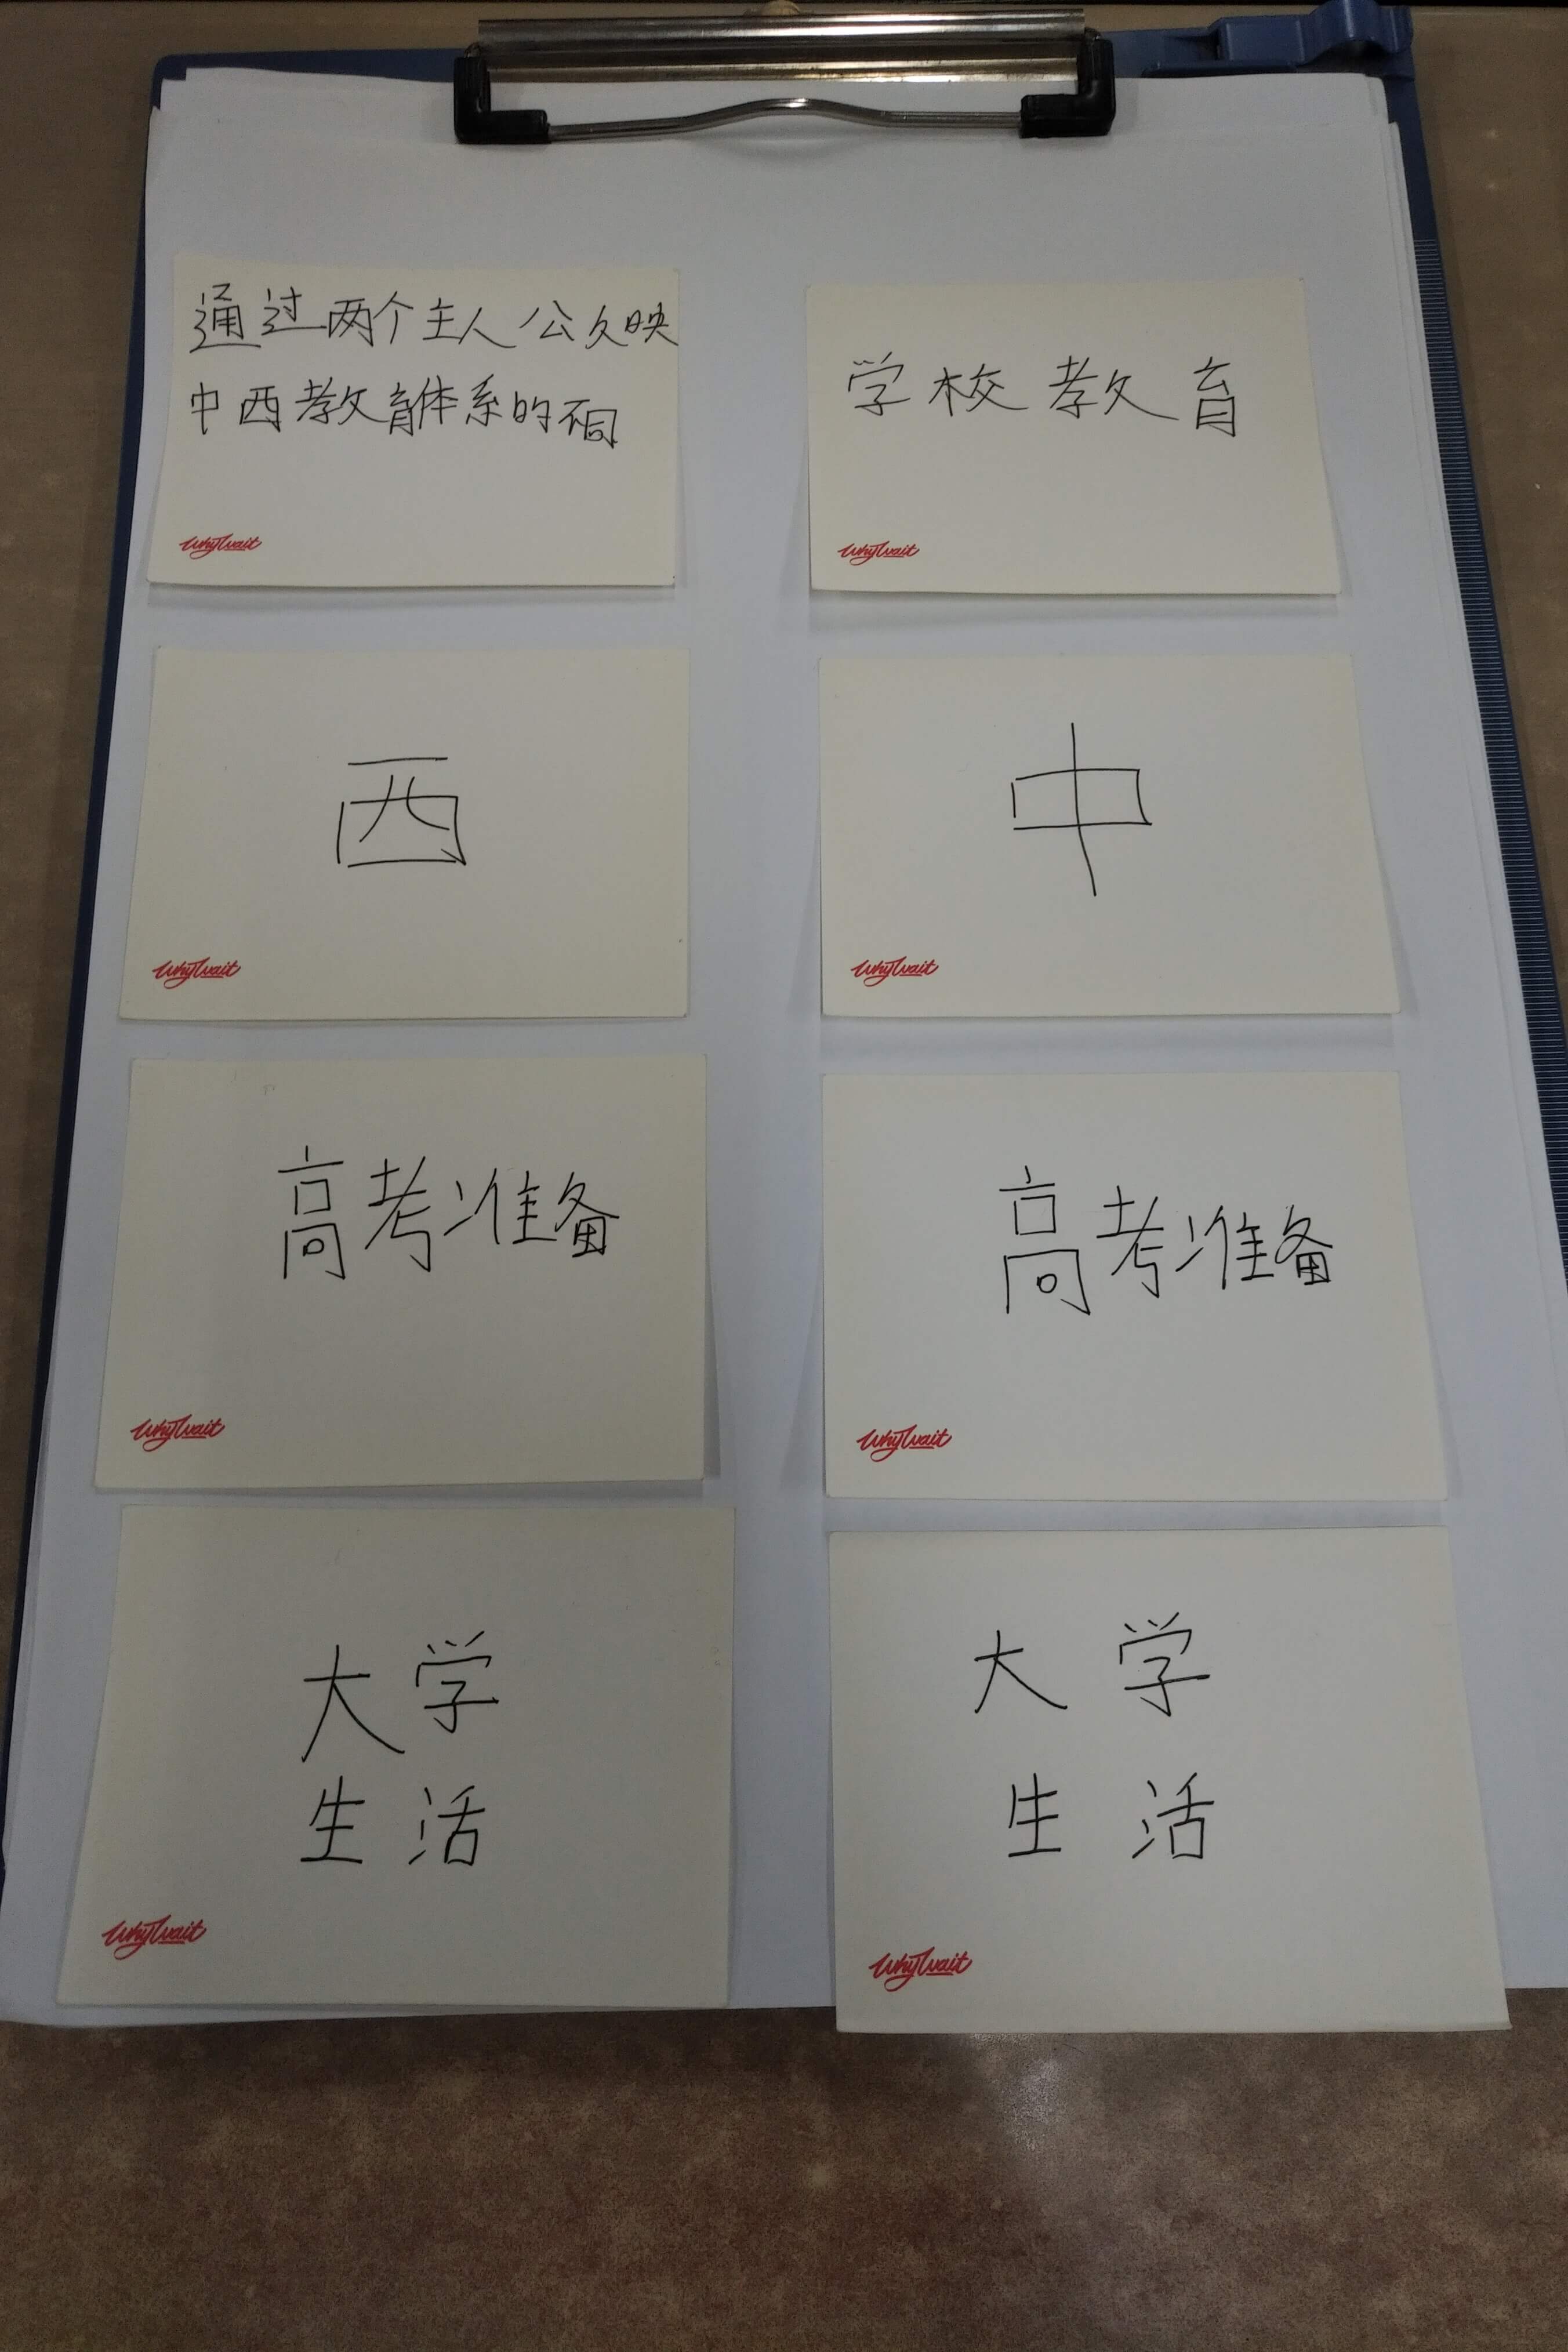 通过两个主人公反映
中西教育体系的不同
WhyWait
学校教育
WhyWait
西
WhyWait
中
WhyWait
高考准备
WhyWait
高考准备
WhyWait
大学
生活
WhyWait
大学
生活
WhyWait